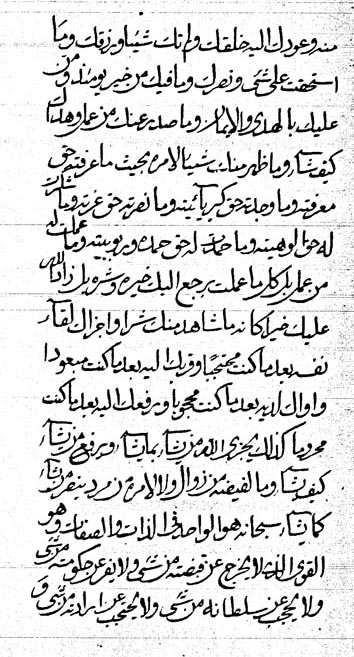 منه وعودك اليه خلقك ولم تك شيئا ورزقك وما
استحقت على شيئ ونصرك وما فيك من خير يومئذ ومن
عليك بالهدى والايمان وما صدر عنك من عمل وهداك
كيف شاء وما ظهر منك شيئا الامره بحيث ما عرفته حق
معرفته وما وجدته حق كبريائيته وما نصرته حق عزته وما
له حق الوهيته وما حمدت له حق حمده وربوبيته وما عملت له
من عمل بل كل ما عملت يرجع اليك خيره وشره بل زاد الله
عليك خيرا كانه ما شاهد منك شرا واجزاك لقاء
نفسه بعد ما كنت محتجبا وقربك اليه بعد ما كنت مبعودا
واواك لديه بعد ما كنت محجوبا ورفعك اليه بعد ما كنت
محدودا كذلك يجزى الله من يشاء بما يشاء ويرفع من يشاء
كيف يشاء وما لفيضه من زوال ولا لامره من مرد ينصر من يشاء
كما يشاء سبحانه هو الواحد فى الذات والصفات وهو
القوى الذى لا يخرج عن قبضته من شيئ ولا يفر عن حكومته من شيئ
ولا يحجب عن سلطانه من شيئ ولا يحتجب عن ارادته من شيئ و